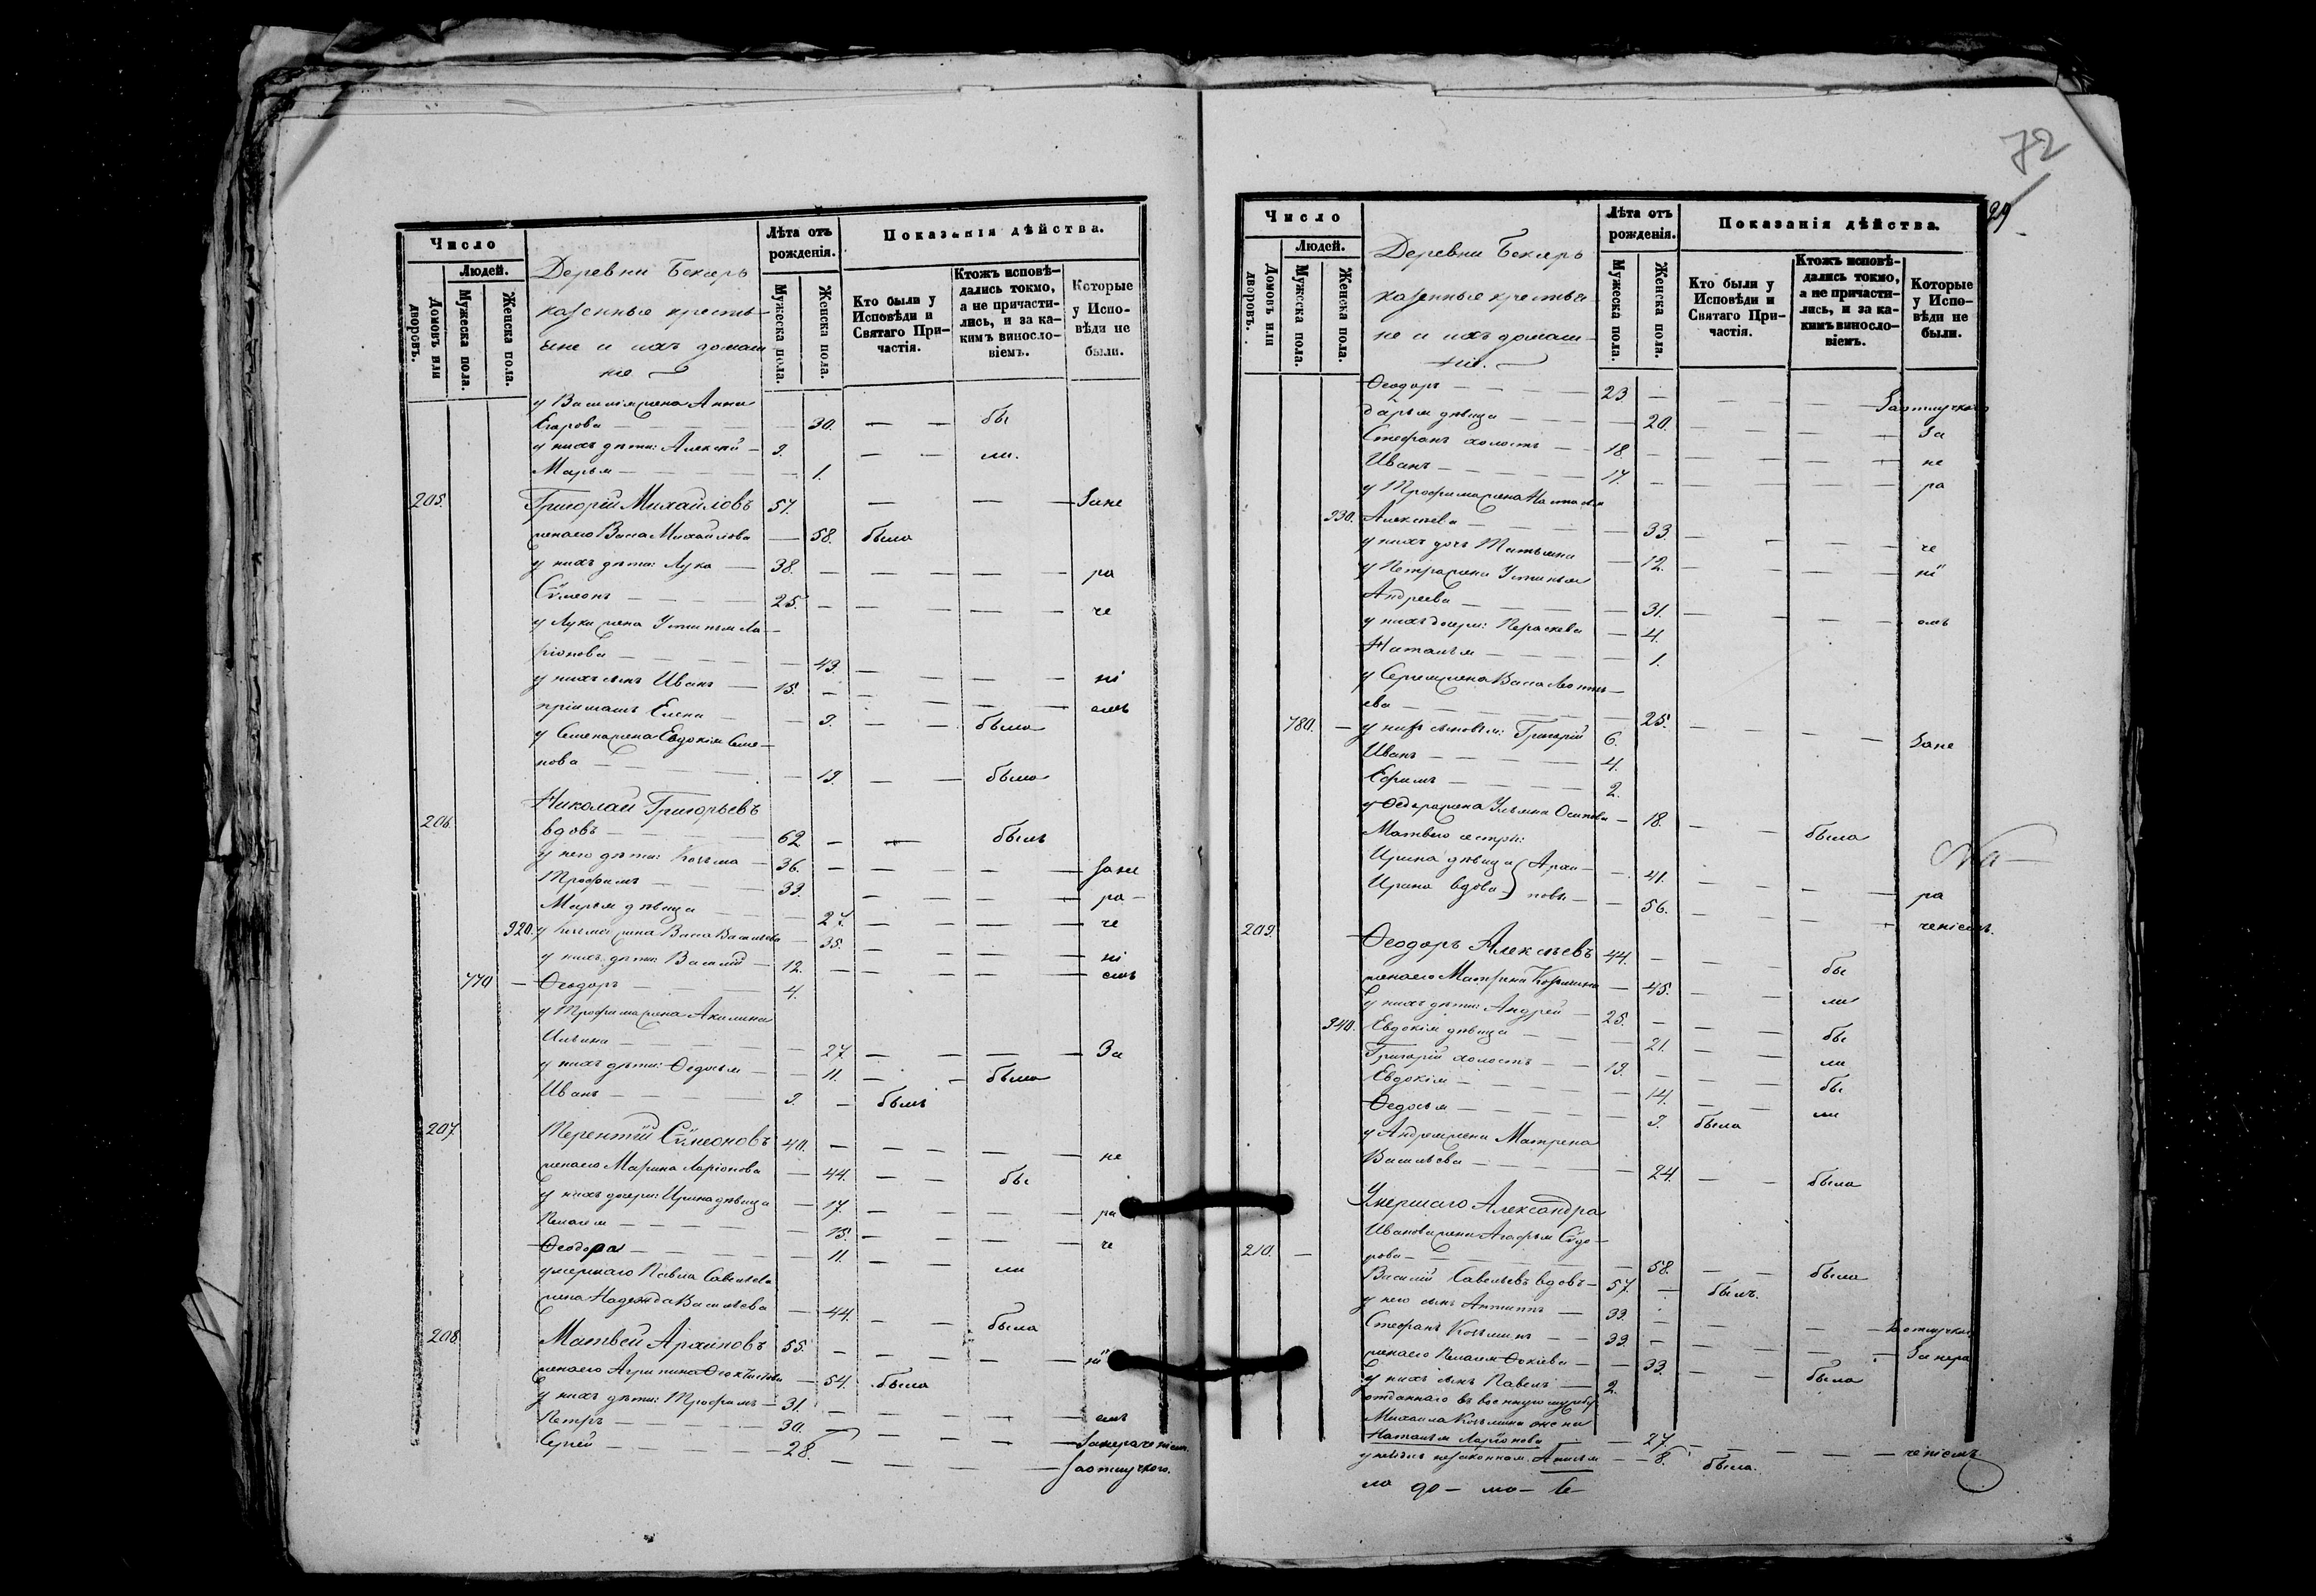 Число
Людей.
Домовъ или дворовъ.
Мужеска пола.
Женска пола.
Деревни Бекаръ
казенные кресть-
яне и ихъ домаш-
ніе
Лѣта отъ рожденія.
Мужеска пола.
Женска пола.
Показанія дѣйства.
Кто были у Исповѣди и Святаго При-частія.
Ктожъ исповѣ-дались токмо, а не причасти-лись, и за ка-кимъ виносло-віемъ.
Которые у Испо-вѣди не были.
у Василія жена Анна
Егорова — 30. — — бы
у нихъ дѣти: Алексѣй — 9. — — ли.
Марья — 1.
205. Григорій Михайловъ 57. — — За не
жена его Васса Михайлова — 58. была
у нихъ дѣти: Лука — 38. — — ра
Сѵмеонъ — 25. — — че
у Луки жена Устинья Ла-
ріонова — 43. — — ні
у нихъ сынъ Иванъ — 15. — — емъ
пріимашъ Елена — 9. — — была
у Семена жена Евдокія Семе-
нова — 19. — — была
206. Николай Григорьевъ
вдовъ — 62 — — былъ
у него дѣти: Козьма — 36. — — За не
Трофимъ — 33. — — ра
Марья дѣвица — 27. — — че
920. у Козьмы жена Васса Васильева — 35. — — ні
у нихъ дѣти: Василій — 12. — — емъ
770 — Ѳеодоръ — 4.
у Трофима жена Акилина
Ильина — 27. — — За
у нихъ дѣти: Ѳедосья — 11. — — была
Иванъ — 9. — былъ
207. Терентій Сѵмеоновъ 40. — — не
жена его Марина Ларіонова — 44. — — бы
у нихъ дочери: Ирина дѣвица — 17. — — ра
Пелагея — 15. — — че
Ѳеодора — 11. — — ли
умершаго Павла Савельева
жена Надежда Васильева — 44. — — была
208. Матвей Архиповъ 55. — — ні
жена его Агрипина — 54. была
у нихъ дѣти: Трофимъ — 31. — — емъ
Петръ — 30. — — За нераченіемъ.
Сергей — 28. — — За отлучкою.
72
Число
Людей.
Домовъ или дворовъ.
Мужеска пола.
Женска пола.
Деревни Бекаръ
казенные крестья-
не и ихъ домаш-
ніе.
Лѣта отъ рожденія.
Мужеска пола.
Женска пола.
Показанія дѣйства.
Кто были у Исповѣди и Святаго При-частія.
Ктожъ исповѣ-дались токмо, а не причасти-лись, и за ка-кимъ виносло-віемъ.
Которые у Испо-вѣди не были.
Ѳеодоръ — 23. — — За отлучкою
Дарья дѣвица — 20. — — За
Стефанъ холостъ — 18. — — не
Иванъ — 17. — — ра
у Трофима жена Наталья
930. Алексѣева — 33. — — че
у нихъ дочь Татьяна — 12. — — ні
у Петра жена Устинья
Андреева — 31. — — емъ
у нихъ дочери: Параскева — 4.
Наталья — 1.
у Сергея жена Васса Леонть-
ева — 25. — — За не
780. — у нихъ сыновья: Григорій 6.
Иванъ — 4.
Ефимъ — 2.
у Ѳедора жена Ульяна Осипова — 18. — — была
Матвея сестры:
Ирина дѣвица } Архи- — 41. — — ра
Ирина вдова } повы — 56. — — ченіемъ.
209. Ѳеодоръ Алексѣевъ 44. — — бы
жена его Матрена Козьмина — 45. — — ли
у нихъ дѣти: Андрей — 25. — — бы
940. Евдокія дѣвица — 21. — — ли
Григорій холостъ — 19. — — бы
Евдокія — 14. — — ли
Ѳедосья — 9. была
у Андрея жена Матрена
Васильева — 24. — — была
Умершаго Александра
Иванова жена Агафья Сидо-
210. — рова — 58. — — была
Василій Савельевъ вдовъ — 57. — былъ.
у него сынъ Антипъ — 33. — — За отлучкою
Стефанъ Козьминъ — 33. — — За нера
жена его Пелагея Фокіева — 33. — — была
у нихъ сынъ Павелъ — 2.
отданнаго въ военную службу
Михаила Козьмина жена
Наталья Ларіонова — 27. — — ченіемъ.
у нея дочь незаконнаяя Анисья — 8. была.